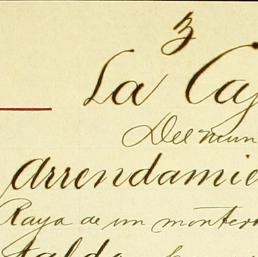 3
La Caj
Del mun
Arrendamie
Raya de un montero